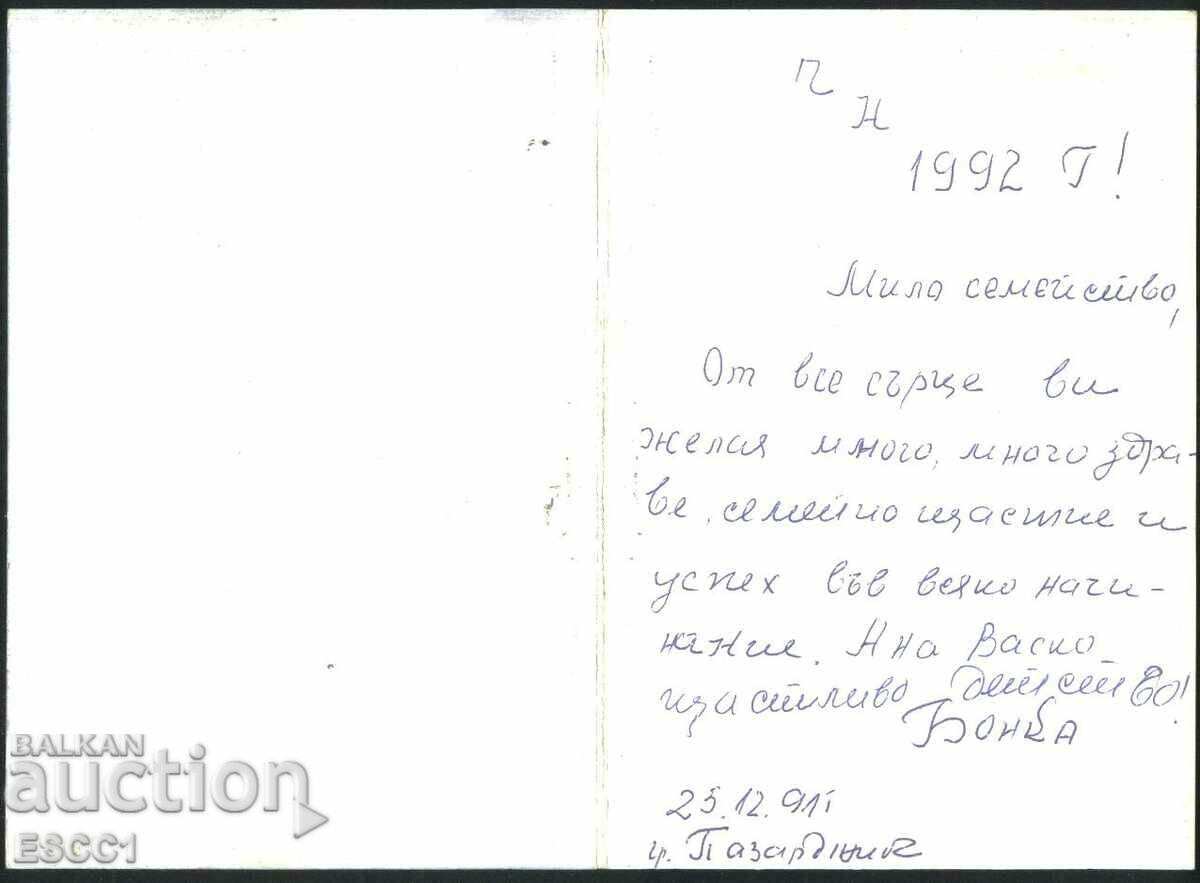 Ч
Н
1992 Г!
Мило семейство,
От все сърце ви
желая много, много здра-
ве, семейно щастие и
успех във всяко начи-
нание. А на Васко
щастливо детство!
Бонка
25.12.91г
гр. Пазарджик
BALKAN
auction
ESCC1